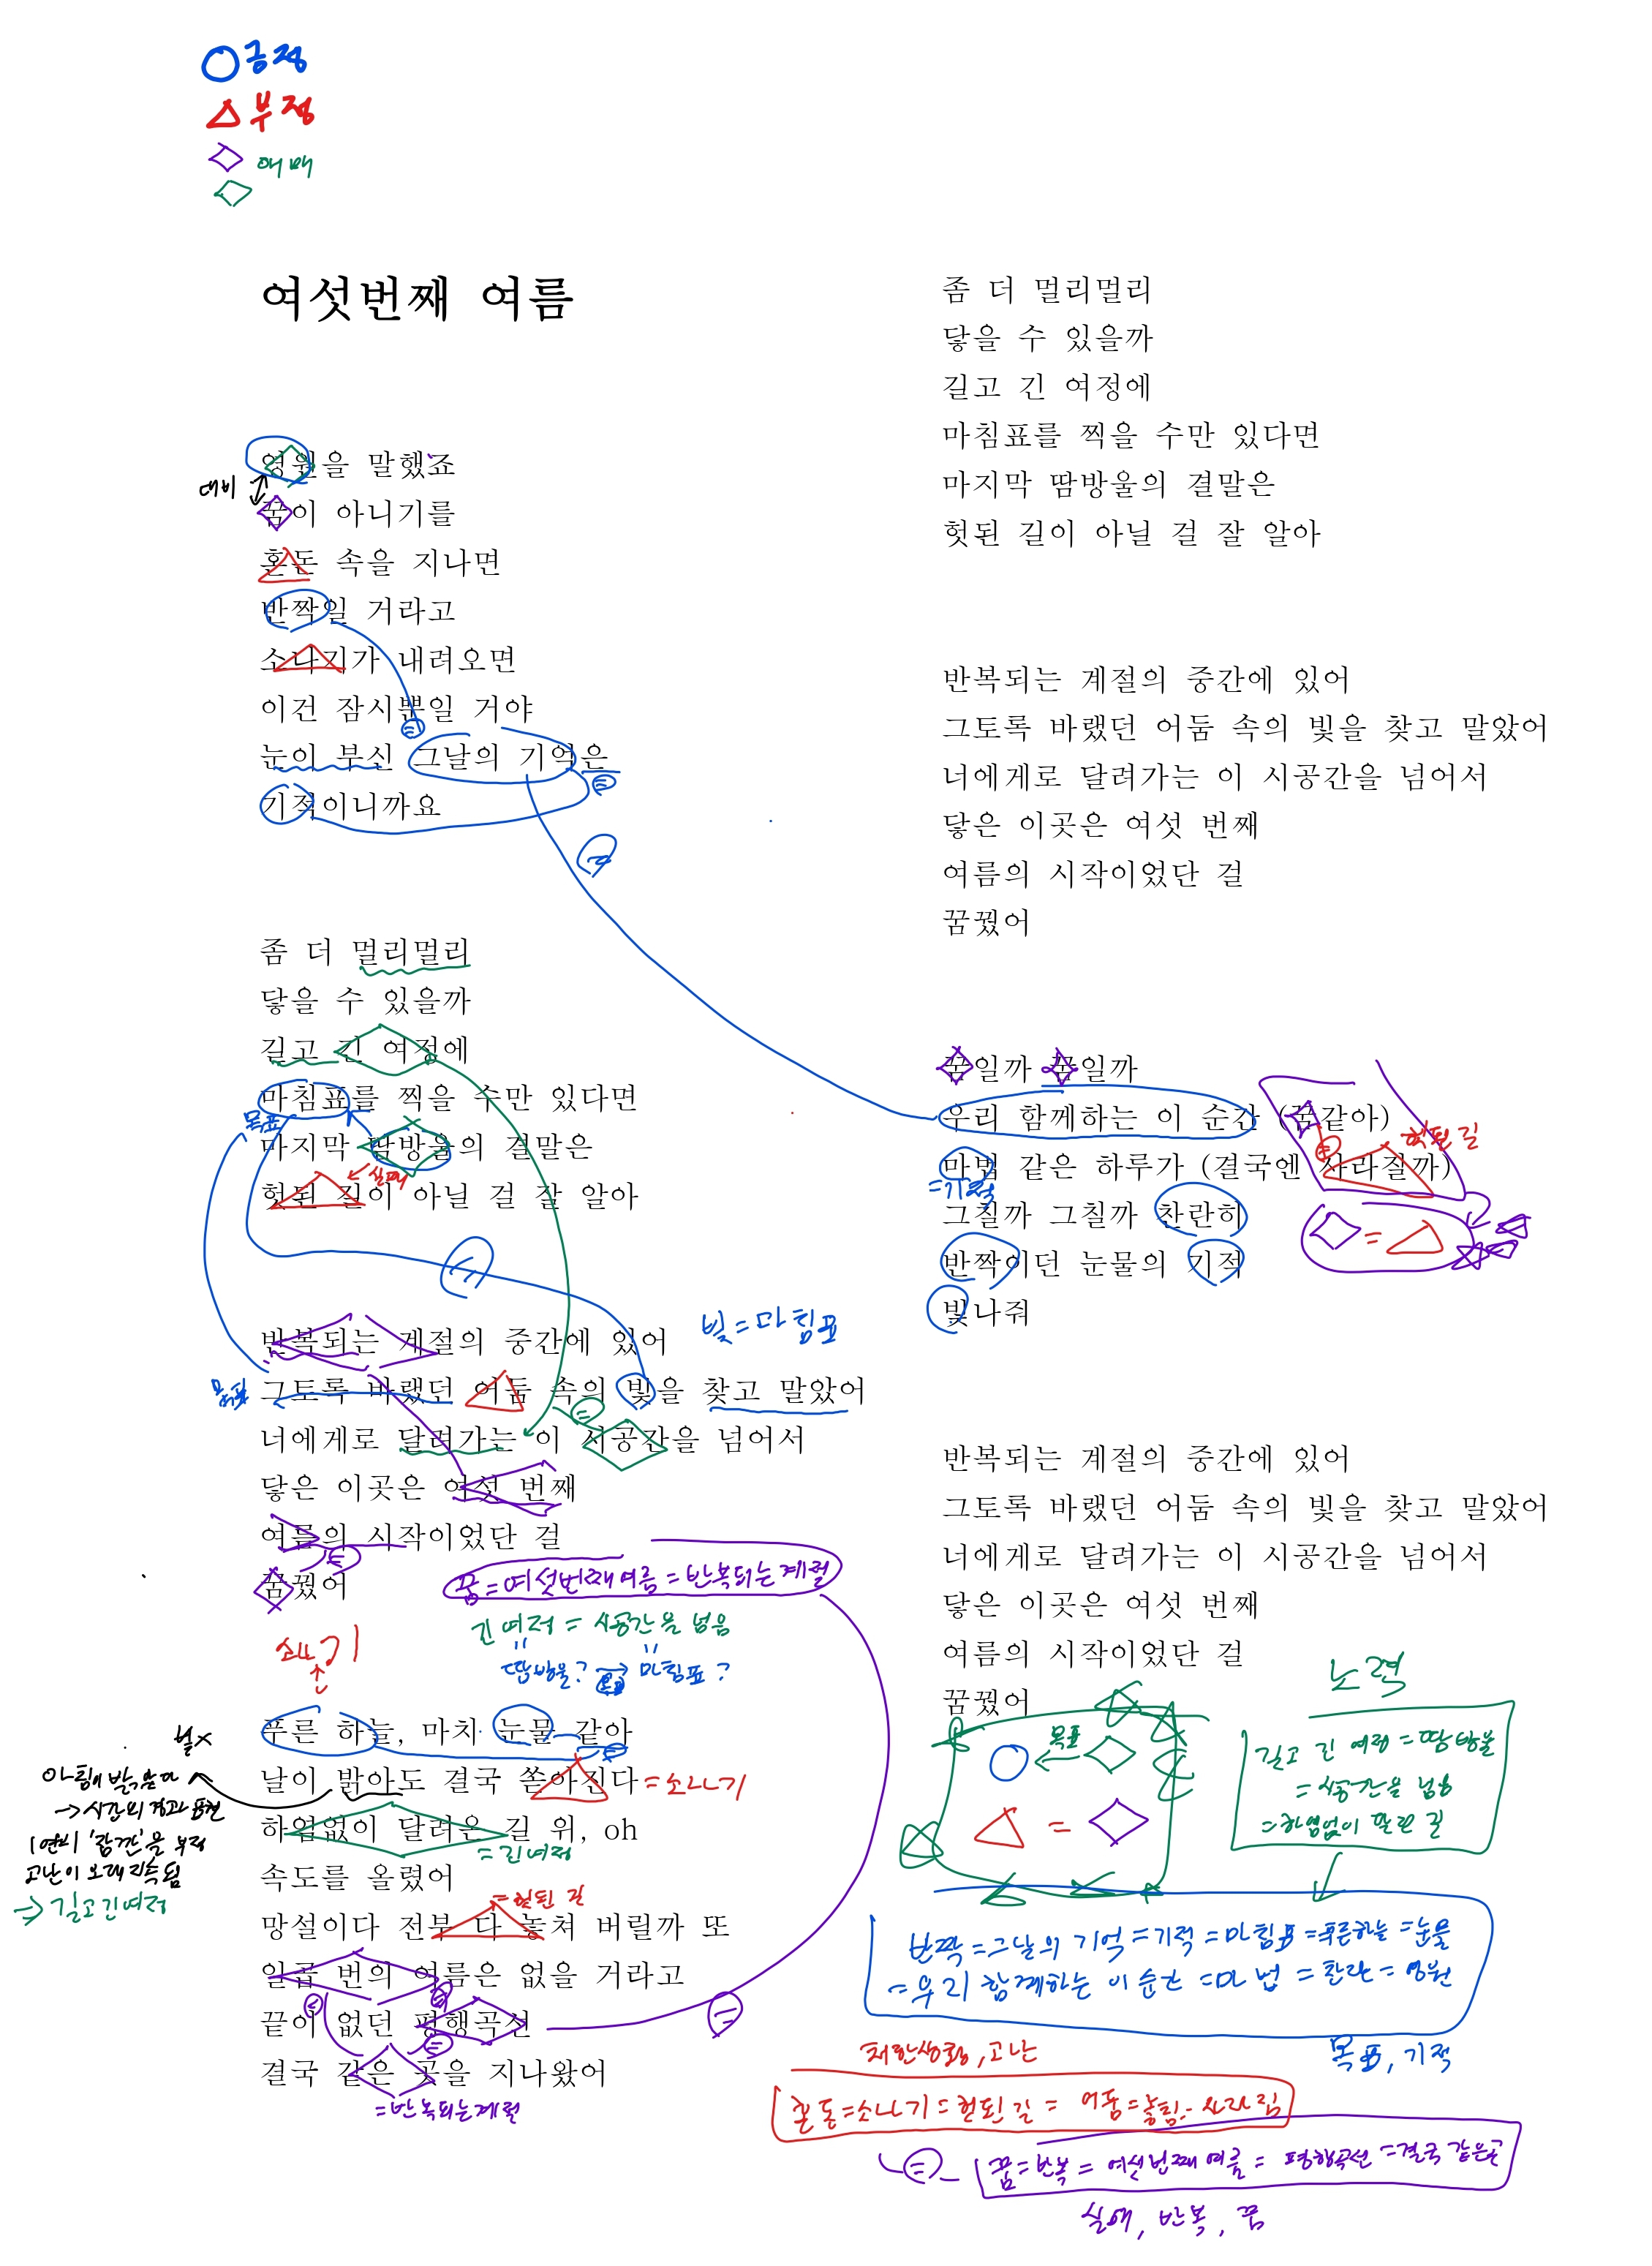 긍정
부정
애매
여섯번째 여름
영원을 말했죠
대비
꿈이 아니기를
혼돈 속을 지나면
반짝일 거라고
소나기가 내려오면
이건 잠시뿐일 거야
눈이 부신 그날의 기억은
기적이니까요
좀 더 멀리멀리
닿을 수 있을까
길고 긴 여정에
마침표를 찍을 수만 있다면
목표
마지막 땀방울의 결말은
실패
헛된 길이 아닐 걸 잘 알아
반복되는 계절의 중간에 있어
빛=마침표
목표
그토록 바랬던 어둠 속의 빛을 찾고 말았어
너에게로 달려가는 이 시공간을 넘어서
닿은 이곳은 여섯 번째
여름의 시작이었단 걸
꿈꿨어
꿈=여섯번째여름=반복되는계절
긴 여정 = 시공간을 넘음
땀방울? 마침표?
소나기
푸른 하늘, 마치 눈물 같아
날이 밝아도 결국 쏟아진다
=소나기
아침이 밝았다
→시간의 경과 표현
1연의 '잠깐'을 부정
고난이 오래 지속됨
→길고긴여정
하염없이 달려온 길 위, oh
=긴여정
속도를 올렸어
=헛된 길
망설이다 전부 다 놓쳐 버릴까 또
일곱 번의 여름은 없을 거라고
끝이 없던 평행곡선
결국 같은 곳을 지나왔어
=반복되는계절
좀 더 멀리멀리
닿을 수 있을까
길고 긴 여정에
마침표를 찍을 수만 있다면
마지막 땀방울의 결말은
헛된 길이 아닐 걸 잘 알아
반복되는 계절의 중간에 있어
그토록 바랬던 어둠 속의 빛을 찾고 말았어
너에게로 달려가는 이 시공간을 넘어서
닿은 이곳은 여섯 번째
여름의 시작이었단 걸
꿈꿨어
꿈일까 꿈일까
우리 함께하는 이 순간 (꿈같아)
헛된길
마법 같은 하루가 (결국엔 사라질까)
=기적
그칠까 그칠까 찬란히
반짝이던 눈물의 기적
빛나줘
반복되는 계절의 중간에 있어
그토록 바랬던 어둠 속의 빛을 찾고 말았어
너에게로 달려가는 이 시공간을 넘어서
닿은 이곳은 여섯 번째
여름의 시작이었단 걸
꿈꿨어
목표
노력
길고 긴 여정=땀방울
=시공간을 넘음
=하염없이 달린 길
반짝=그날의 기억=기적=마침표=푸른하늘=눈물
=우리 함께하는 이 순간=마법=찬란=영원
목표, 기적
처한상황, 고난
혼돈=소나기=헛된길= 어둠=놓침=사라짐
꿈=반복=여섯번째여름= 평행곡선=결국 같은곳
실애, 반복, 꿈